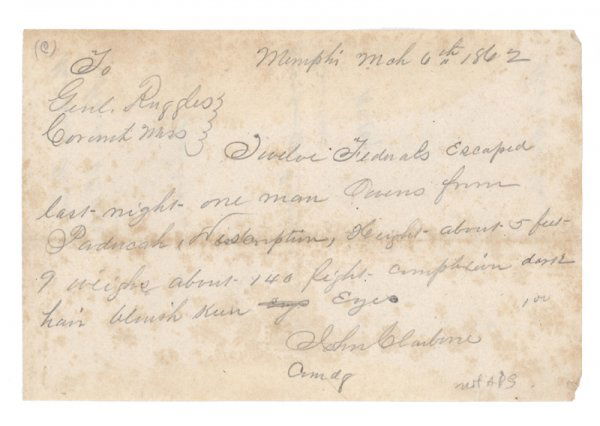 (C)
To Memphis Mch 6th 1862
Genl. Ruggles
Corinth Miss
Twelve Federals Escaped
last night one man Owens from
Paducah, Discription, Height about 5 feet
9 weighs about 140 light complexion dark
hair bluish Keen Eyes
John Claiborne
Comdg
not APS.